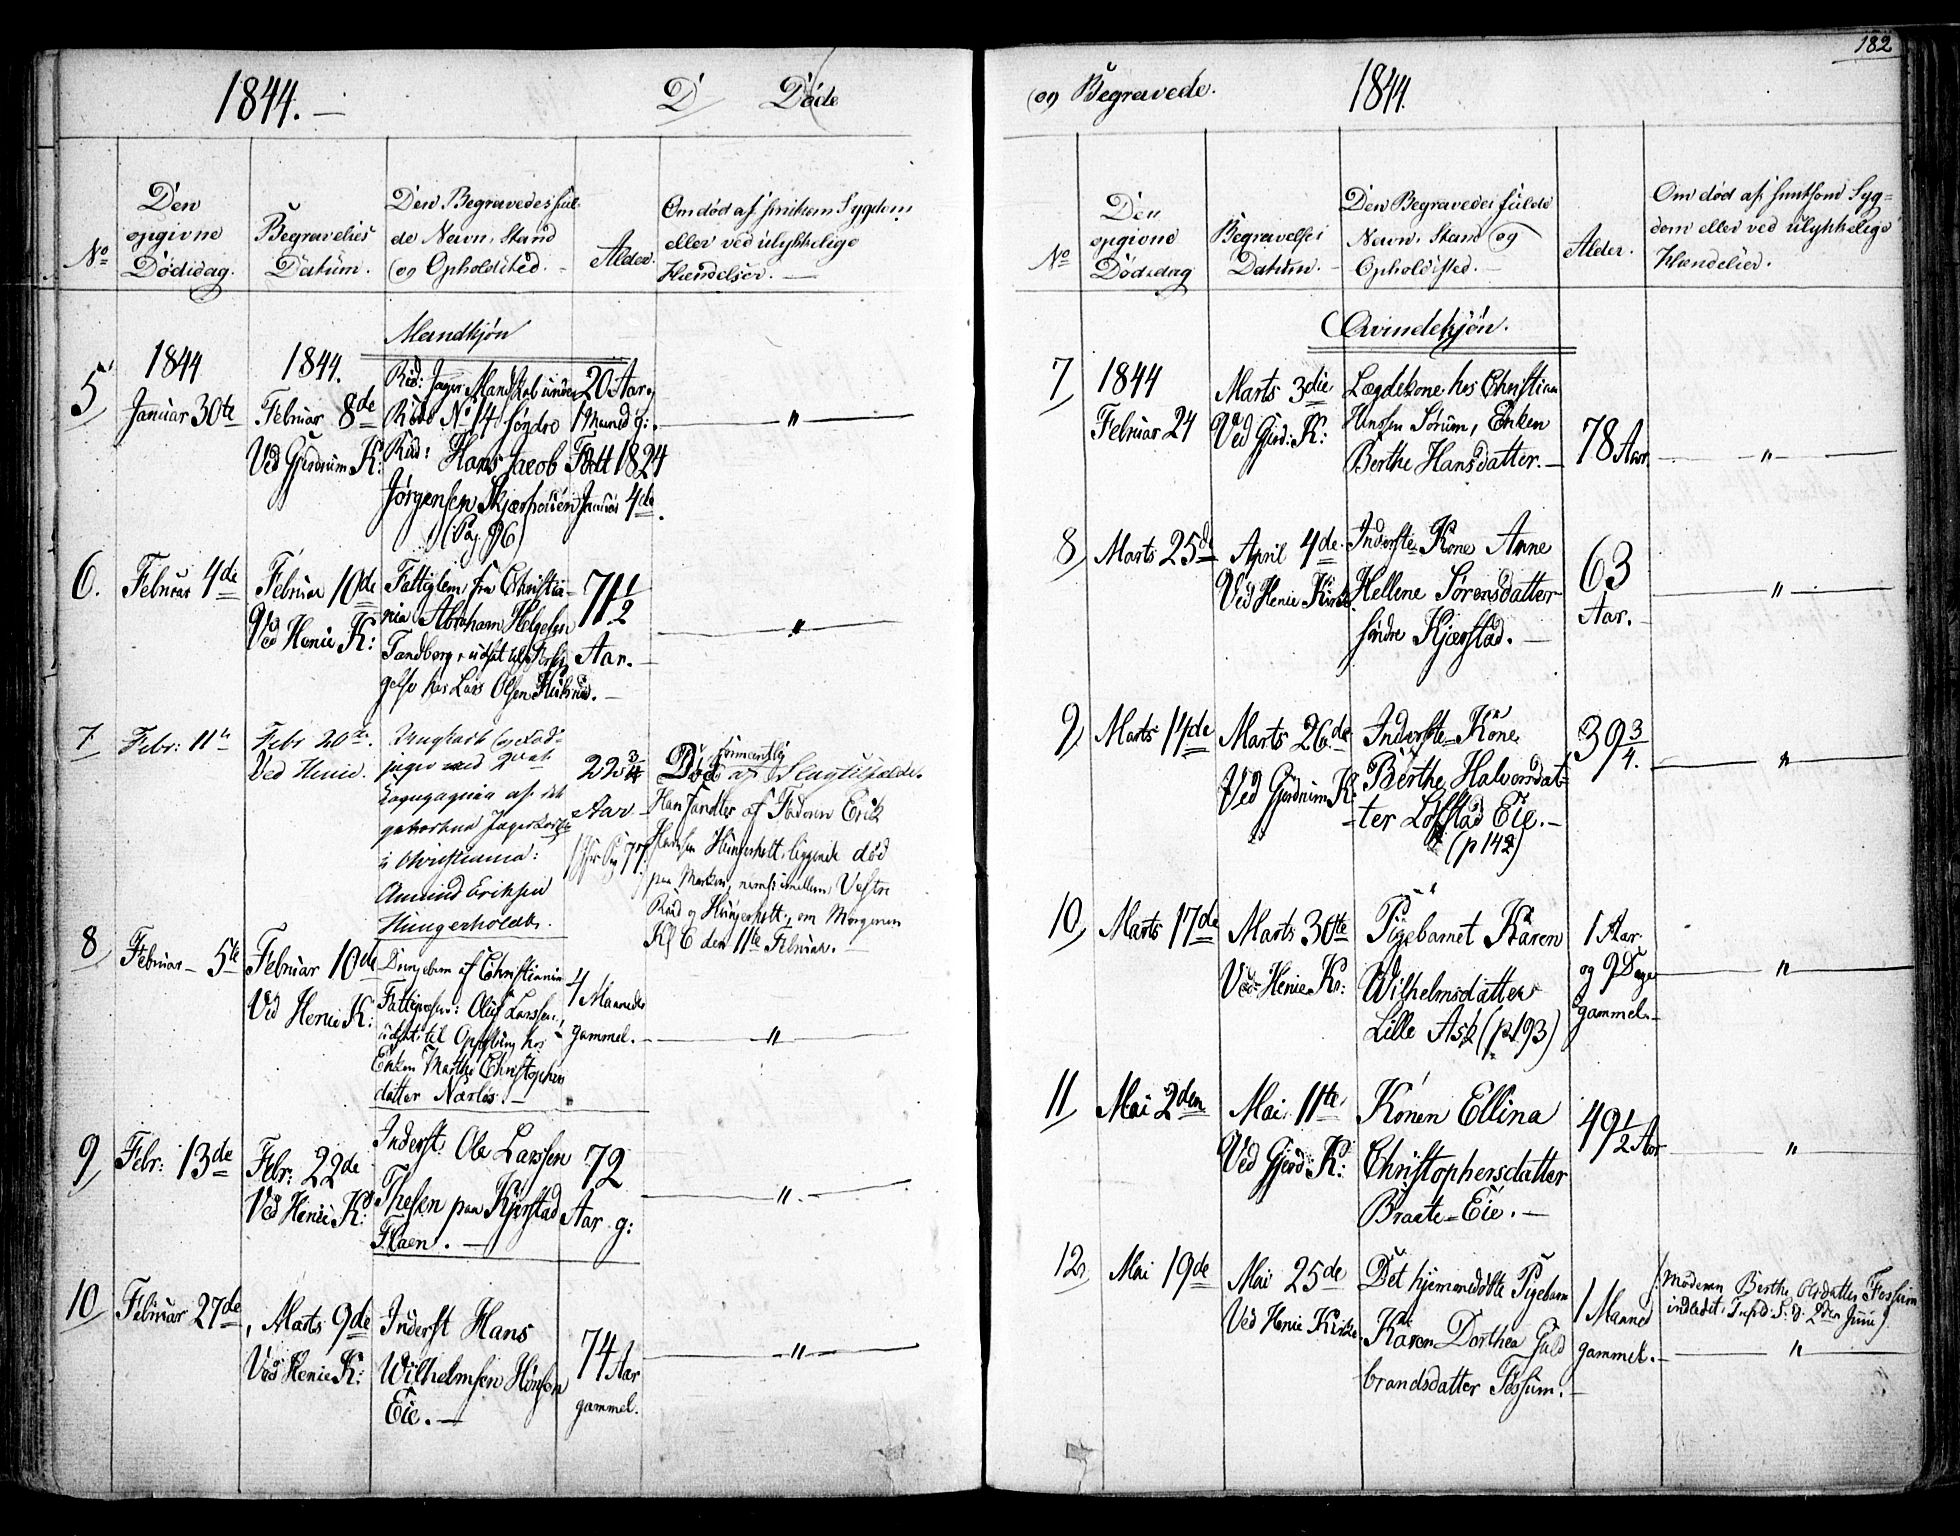 182
1844.—
D Døde
No
Den opgivne Dødsdag.
Begravelses Datum.
Den Begravedes fulde Navn, Stand og Opholdsted.
Alder.
Om død af smitsom Sygdom eller ved ulykkelige Hændelser.
Mandkjøn
5
1844
Januar 30te
1844.
Februar 8de
Ved Gjerdrum K:
Jørgensen
(Pag. 96)
Hans Jacob
20 Aar
1 Maaned g:
Født 1824
Januar 4de
"
6.
Februar 4de
Februar 10de
Ved Henie K:
Fattiglem fra Christia-
nia Abraham Helgesen
Tandberg, udsat til
hos Lars Olsen
71 1/2
Aar.
"
7
Febr: 11te
Febr 20de.
Ved Henie.
jæger ved 2det
af det
i Christiania:
Amund Eriksen
Hungerholdt.
22 3/4
Aar
Død formentlig af Slagtilfælde.
Han fandtes af Faderen Erik
Hungerholt liggende død
paa Marken, imellem Vestre
Ruud og Hungerholt, om Morgenen
Kl 6 den 11te Februar.
8
Februar 5te
Februar 10de
Ved Henie K:
af Christiania
Oluf Larssen,
udsat til hos
Enken Marthe Christophers
datter
4 Maaneder
gammel.
"
9
Febr: 13de
Febr: 22de
Ved Henie K:
Inderst Ole Larssen
paa Kjerstad
72
Aar g:
"
10
Februar 27de
Marts 9de
Ved Henie K:
Inderst Hans
Wilhelmsen Hønsen
Eie.—
74 Aar
gammel.
"
og Begravede.
1844.
No
Den opgivne Dødsdag
Begravelses Datum.
Den Begravedes fulde Navn, Stand og Opholdsted.
Alder.
Om død af smitsom Sygdom eller ved ulykkelige Hændelser.
Qvindekjøn.
7
1844
Februar 24
Marts 3die
Ved Gjerd: K:
Lægdekone hos Christian
Hanssen Sørum, Enken
Berthe Hansdatter.—
78 Aar
"
8
Marts 25de
April 4de
Ved Henie Kirke
Inderste Kone Anne
Hellene Sørensdatter
søndre Kjærstad.—
63
Aar.
"
9
Marts 14de
Marts 26de
Ved Gjerdrum K:
Inderste-Kone
Berthe Halvorsdat-
ter Løfstad Eie.—
(p 142)
39 3/4.
"
10
Marts 17de
Marts 30te
Ved Henie K:
Pigebarnet Karen
Wilhelmsdatter
Lille Ask (p 193)
1 Aar
og 9 Dage
gammel.
"
11
Mai 2den
Mai 11te
Ved Gjerd: K:
Konen Ellina
Christophersdatter
Braate-Eie.—
49 1/2 Aar
"
12
Mai 19de
Mai 25de
Ved Henie Kirke
Det hjemmedøbte Pigebarn
Karen Dorthea Guld
brandsdatter Fossum.
1 Maaned
gammel.
Moderen Berthe Olsdatter Fossum
indledet 2den Juni
"